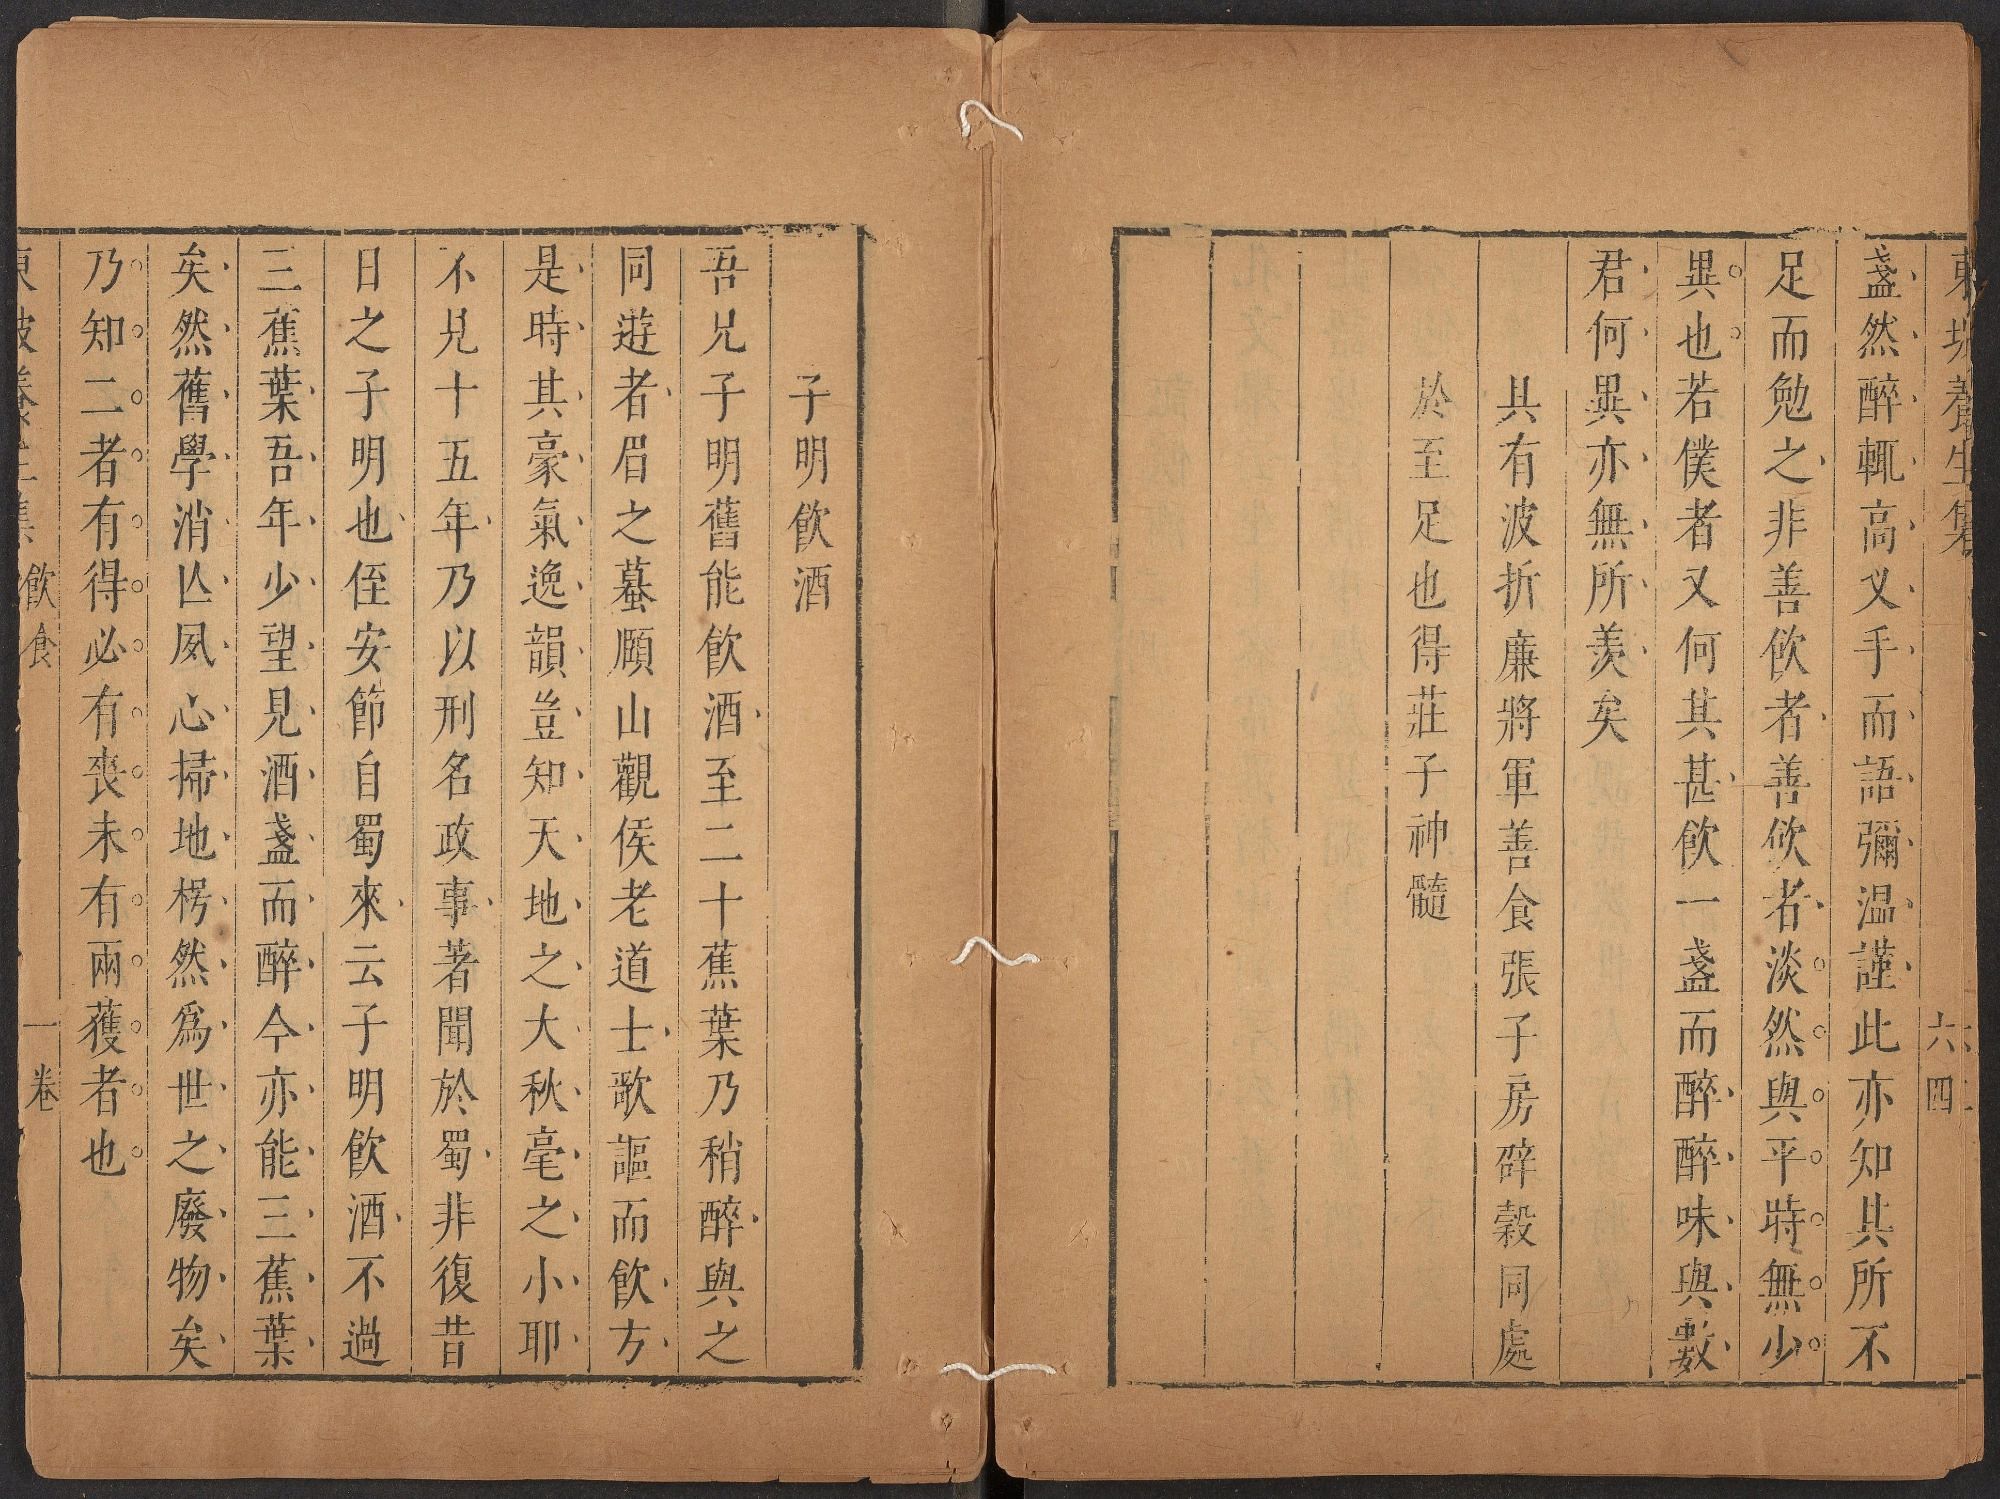 東坡養生集
六四
盞然醉輒高义手而語彌温謹此亦知其所不
足而勉之非善飲者善飲者淡然與平時無少
異也若僕者又何其甚飲一盞而醉醉味與數
君何異亦無所羨矣
具有波折廉將軍善食張子房辟穀同處
於至足也得莊子神髓
子明飲酒
吾兄子明舊能飲酒至二十蕉葉乃稍醉與之
同遊者眉之蟇頤山觀侯老道士歌謳而飲方
是時其豪氣逸韻豈知天地之大秋毫之小耶
不見十五年乃以刑名政事著聞於蜀非復昔
日之子明也侄安節自蜀來云子明飲酒不過
三蕉葉吾年少望見酒盞而醉今亦能三蕉葉
矣然舊學消亾夙心掃地枵然為世之廢物矣
乃知二者有得必有喪未有兩獲者也
東坡養生集 飲食 一卷